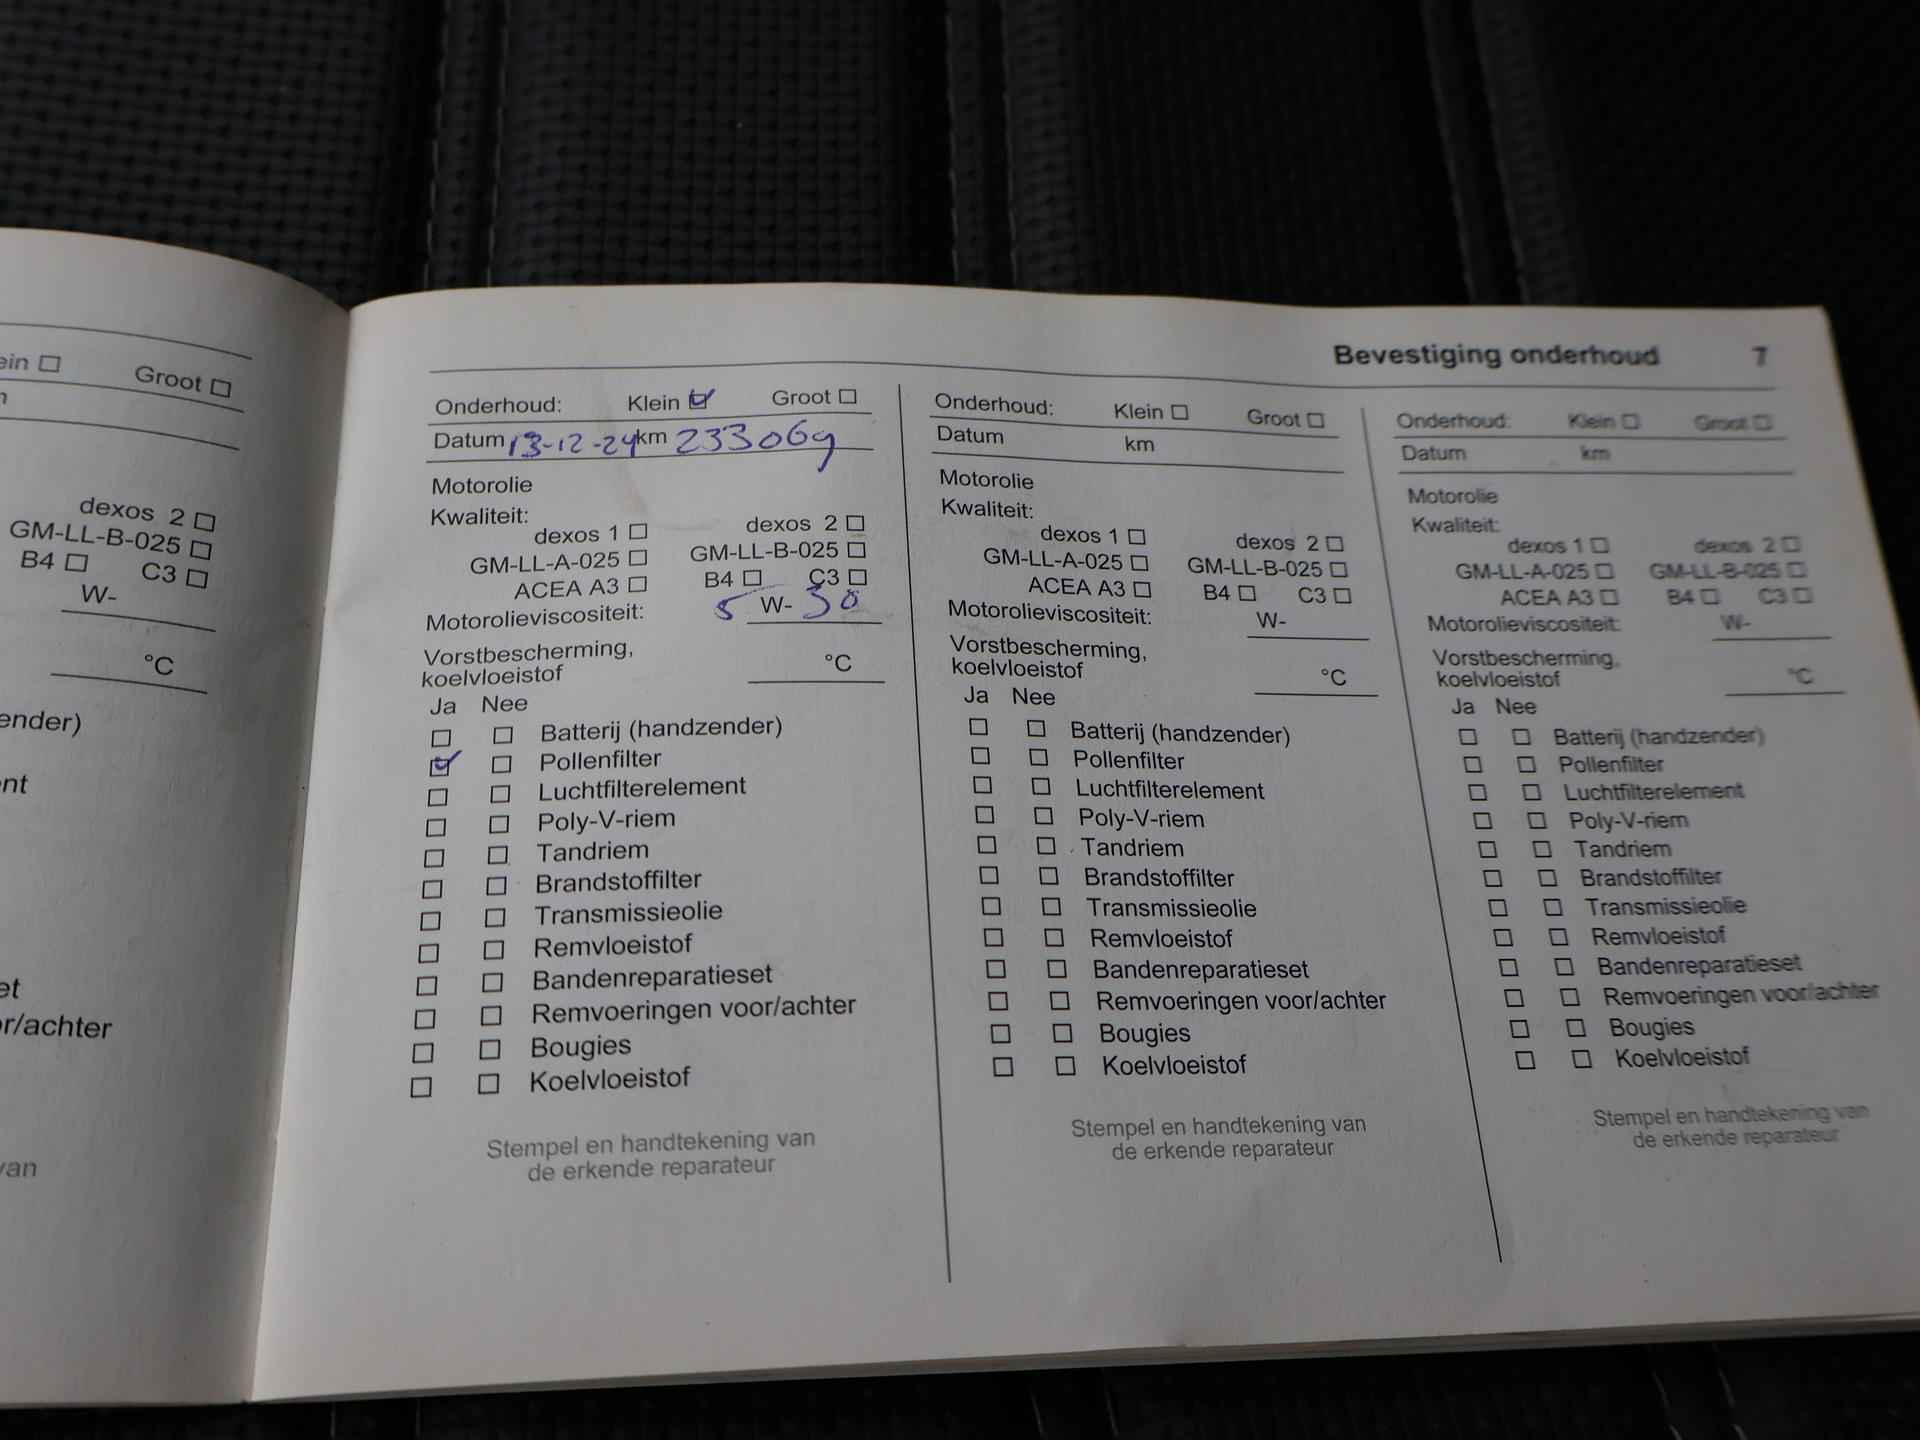 ein ☐ Groot ☐
dexos 2 ☐
GM-LL-B-025 ☐
B4 ☐ C3 ☐
W-
°C
ender)
nt
et
or/achter
van
Bevestiging onderhoud 7
Onderhoud: Klein ☑ Groot ☐
Datum 13-12-24 km 233069
Motorolie
Kwaliteit:
dexos 1 ☐ dexos 2 ☐
GM-LL-A-025 ☐ GM-LL-B-025 ☐
ACEA A3 ☐ B4 ☐ C3 ☐
Motorolieviscositeit: 5 W- 30
Vorstbescherming,
koelvloeistof °C
Ja Nee
☐ ☐ Batterij (handzender)
☑ ☐ Pollenfilter
☐ ☐ Luchtfilterelement
☐ ☐ Poly-V-riem
☐ ☐ Tandriem
☐ ☐ Brandstoffilter
☐ ☐ Transmissieolie
☐ ☐ Remvloeistof
☐ ☐ Bandenreparatieset
☐ ☐ Remvoeringen voor/achter
☐ ☐ Bougies
☐ ☐ Koelvloeistof
Stempel en handtekening van
de erkende reparateur
Onderhoud: Klein ☐ Groot ☐
Datum km
Motorolie
Kwaliteit:
dexos 1 ☐ dexos 2 ☐
GM-LL-A-025 ☐ GM-LL-B-025 ☐
ACEA A3 ☐ B4 ☐ C3 ☐
Motorolieviscositeit: W-
Vorstbescherming,
koelvloeistof °C
Ja Nee
☐ ☐ Batterij (handzender)
☐ ☐ Pollenfilter
☐ ☐ Luchtfilterelement
☐ ☐ Poly-V-riem
☐ ☐ Tandriem
☐ ☐ Brandstoffilter
☐ ☐ Transmissieolie
☐ ☐ Remvloeistof
☐ ☐ Bandenreparatieset
☐ ☐ Remvoeringen voor/achter
☐ ☐ Bougies
☐ ☐ Koelvloeistof
Stempel en handtekening van
de erkende reparateur
Onderhoud: Klein ☐ Groot ☐
Datum km
Motorolie
Kwaliteit:
dexos 1 ☐ dexos 2 ☐
GM-LL-A-025 ☐ GM-LL-B-025 ☐
ACEA A3 ☐ B4 ☐ C3 ☐
Motorolieviscositeit: W-
Vorstbescherming,
koelvloeistof °C
Ja Nee
☐ ☐ Batterij (handzender)
☐ ☐ Pollenfilter
☐ ☐ Luchtfilterelement
☐ ☐ Poly-V-riem
☐ ☐ Tandriem
☐ ☐ Brandstoffilter
☐ ☐ Transmissieolie
☐ ☐ Remvloeistof
☐ ☐ Bandenreparatieset
☐ ☐ Remvoeringen voor/achter
☐ ☐ Bougies
☐ ☐ Koelvloeistof
Stempel en handtekening van
de erkende reparateur